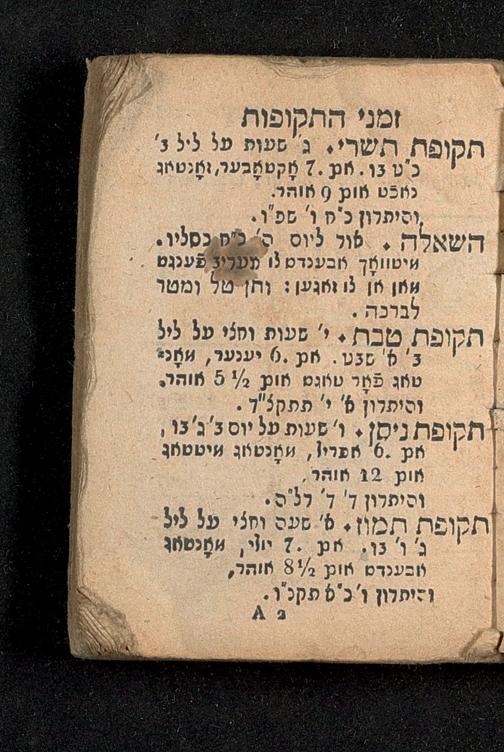 זמני התקופות
תקופת תשרי. ג׳ שעות על ליל ב׳
כ״ט בו. אם 7. אָקטאָבער, זאָנטאג
נאכֿט אום 9 אוהר.
והיתרון כ״ח ו׳ שפ״ו.
השאלה. אור ליום ה׳ כ״ח כסליו.
מיטוואָך אבענדס לו מעריב פֿענגט
מאן אן לו זאגען: ותן טל ומטר
לברכה.
תקופת טבת. י׳ שעות וחצי על ליל
ב׳ א׳ שבט. אם 6. יענער, מאָנ־
טאג פֿאָר טאגס אום 5 1/2 אוהר.
והיתרון א׳ י׳ תתקל״ד.
תקופת ניסן. ו׳ שעות על יום ב׳ ג׳ בו,
אם 6. אפריל, מאָנטאג מיטטאג
אום 12 אוהר,
והיתרון ד׳ ד׳ רל״ה.
תקופת תמוז. א׳ שעה וחצי על ליל
ג׳ ו׳ בו. אם 7. יולי, מאָנטאג
אבענדס אום 8 1/2 אוהר,
והיתרון ו׳ כ״א תקנ״ו.
A 2